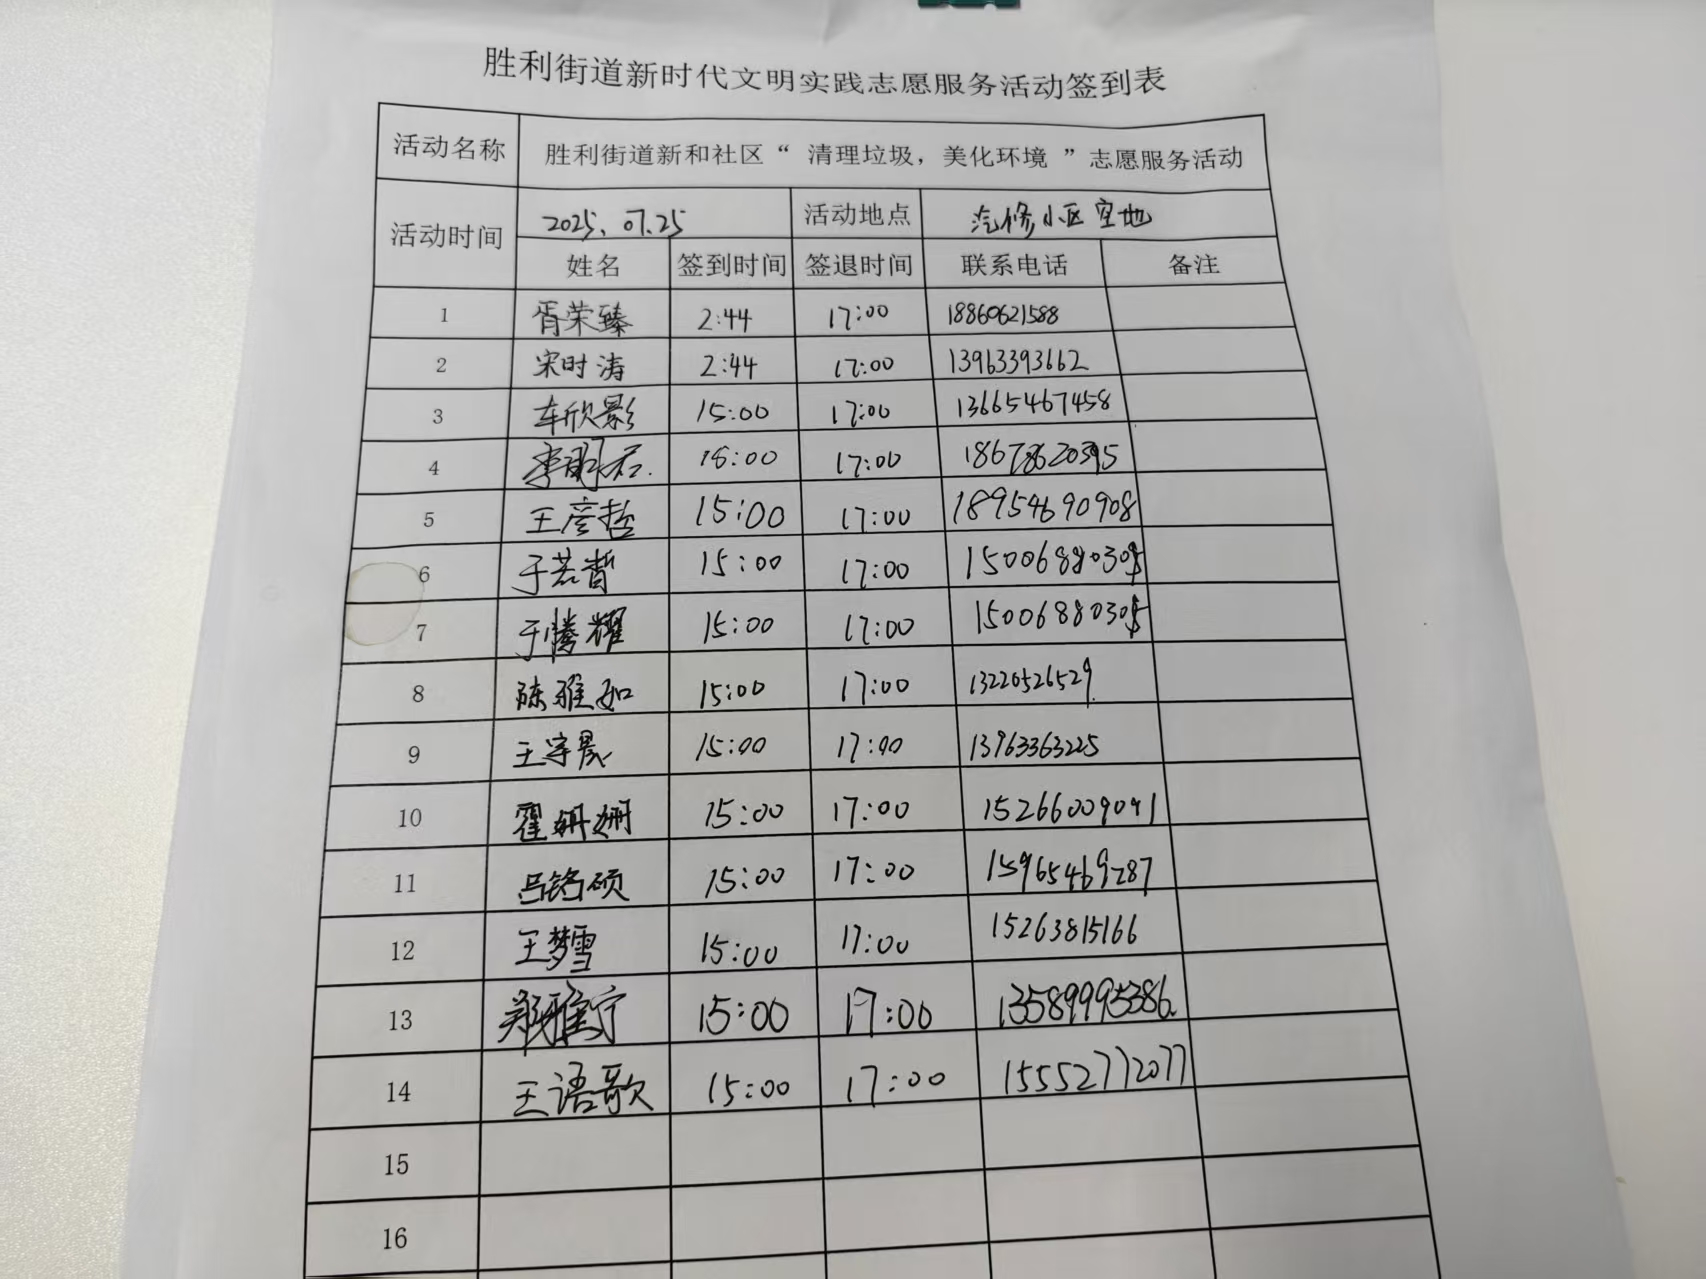 胜利街道新时代文明实践志愿服务活动签到表
活动名称 胜利街道新和社区“清理垃圾，美化环境”志愿服务活动
活动时间 2025.07.25 活动地点 汽修小区空地
姓名 签到时间 签退时间 联系电话 备注
1 胥荣臻 2:44 17:00 18860621588
2 宋时涛 2:44 17:00 13963393662
3 车欣影 15:00 17:00 13665467458
4 李明石 17:00 18678620395
5 王彦哲 15:00 17:00 18954690908
6 于若皙 15:00 17:00
7 于腾耀 15:00 17:00
8 陈雅如 15:00 17:00 13220526529
9 王宇晨 15:00 17:00 13963363225
10 霍姗姗 15:00 17:00 15266009091
11 吕铭硕 15:00 17:00 15965469287
12 王梦雪 15:00 17:00 15263815166
13 郑雅宁 15:00 17:00 13589995386
14 王语歌 15:00 17:00 15552772077
15
16